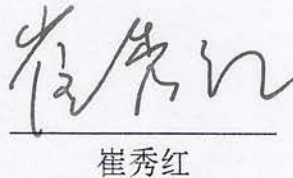 崔秀红
崔秀红